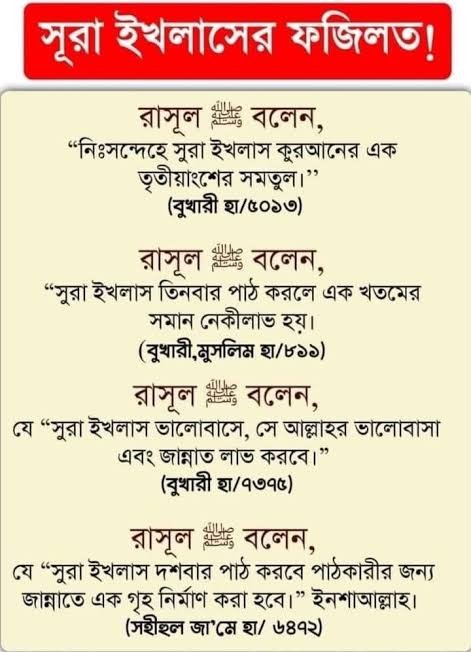 সূরা ইখলাসের ফজিলত!
রাসূল ﷺ বলেন,
“নিঃসন্দেহে সুরা ইখলাস কুরআনের এক
তৃতীয়াংশের সমতুল।’’
(বুখারী হা/৫০১৩)
রাসূল ﷺ বলেন,
“সুরা ইখলাস তিনবার পাঠ করলে এক খতমের
সমান নেকীলাভ হয়।
(বুখারী,মুসলিম হা/৮১১)
রাসূল ﷺ বলেন,
যে “সুরা ইখলাস ভালোবাসে, সে আল্লাহর ভালোবাসা
এবং জান্নাত লাভ করবে।”
(বুখারী হা/৭৩৭৫)
রাসূল ﷺ বলেন,
যে “সুরা ইখলাস দশবার পাঠ করবে পাঠকারীর জন্য
জান্নাতে এক গৃহ নির্মাণ করা হবে।” ইনশাআল্লাহ।
(সহীহুল জা’মে হা/ ৬৪৭২)